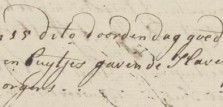 15 dito doordendag goed
en buytjes gaven de Slaven
orgens